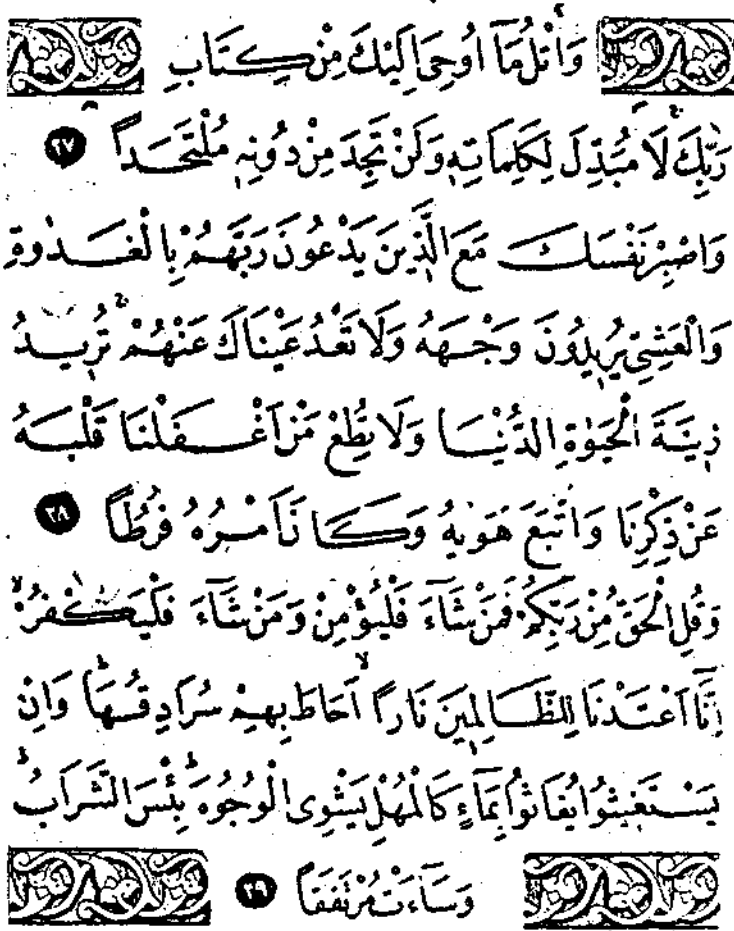 وَاتْلُ مَٓا اُوحِيَ اِلَيْكَ مِنْ كِتَابِ
رَبِّكَۚ لَا مُبَدِّلَ لِكَلِمَاتِه۪ وَلَنْ تَجِدَ مِنْ دُونِه۪ مُلْتَحَداً ٢٧
وَاصْبِرْ نَفْسَكَ مَعَ الَّذ۪ينَ يَدْعُونَ رَبَّهُمْ بِالْغَدٰوةِ
وَالْعَشِيِّ يُر۪يدُونَ وَجْهَهُ وَلَا تَعْدُ عَيْنَاكَ عَنْهُمْۚ تُر۪يدُ
ز۪ينَةَ الْحَيٰوةِ الدُّنْيَا وَلَا تُطِعْ مَنْ اَغْفَلْنَا قَلْبَهُ
عَنْ ذِكْرِنَا وَاتَّبَعَ هَوٰيهُ وَكَانَ اَمْرُهُ فُرُطاً ٢٨
وَقُلِ الْحَقُّ مِنْ رَبِّكُمْ فَمَنْ شَٓاءَ فَلْيُؤْمِنْ وَمَنْ شَٓاءَ فَلْيَكْفُرْۙ
اِنَّٓا اَعْتَدْنَا لِلظَّالِم۪ينَ نَاراًۙ اَحَاطَ بِهِمْ سُرَادِقُهَاۜ وَاِنْ
يَسْتَغ۪يثُوا يُغَاثُوا بِمَٓاءٍ كَالْمُهْلِ يَشْوِي الْوُجُوهَۜ بِئْسَ الشَّرَابُۜ
وَسَٓاءَتْ مُرْتَفَقاً ٢٩